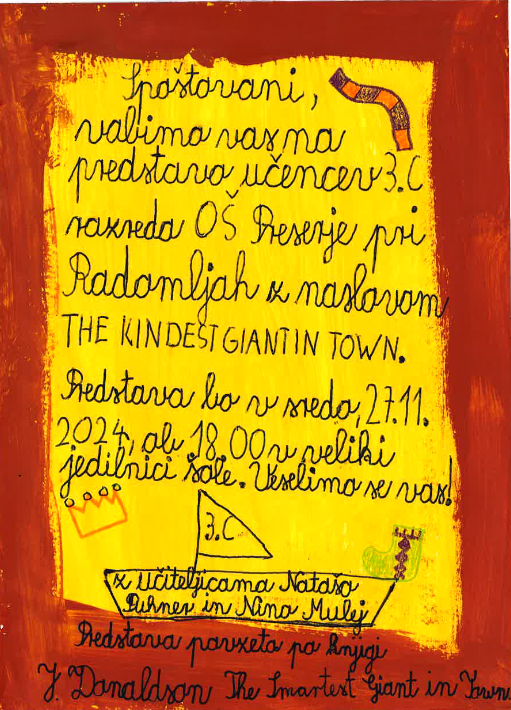 Spoštovani,
vabimo vas na
predstavo učencev 3.C
razreda OŠ Preserje pri
Radomljah z naslovom
THE KINDEST GIANT IN TOWN.
Predstava bo v sredo, 27.11.
2024, ob 18.00 v veliki
jedilnici šole. Veselimo se vas!
3.C
z učiteljicama Natašo
Puhner in Nino Mulej
Predstava povzeta po knjigi
J. Donaldson The Smartest Giant in Town.